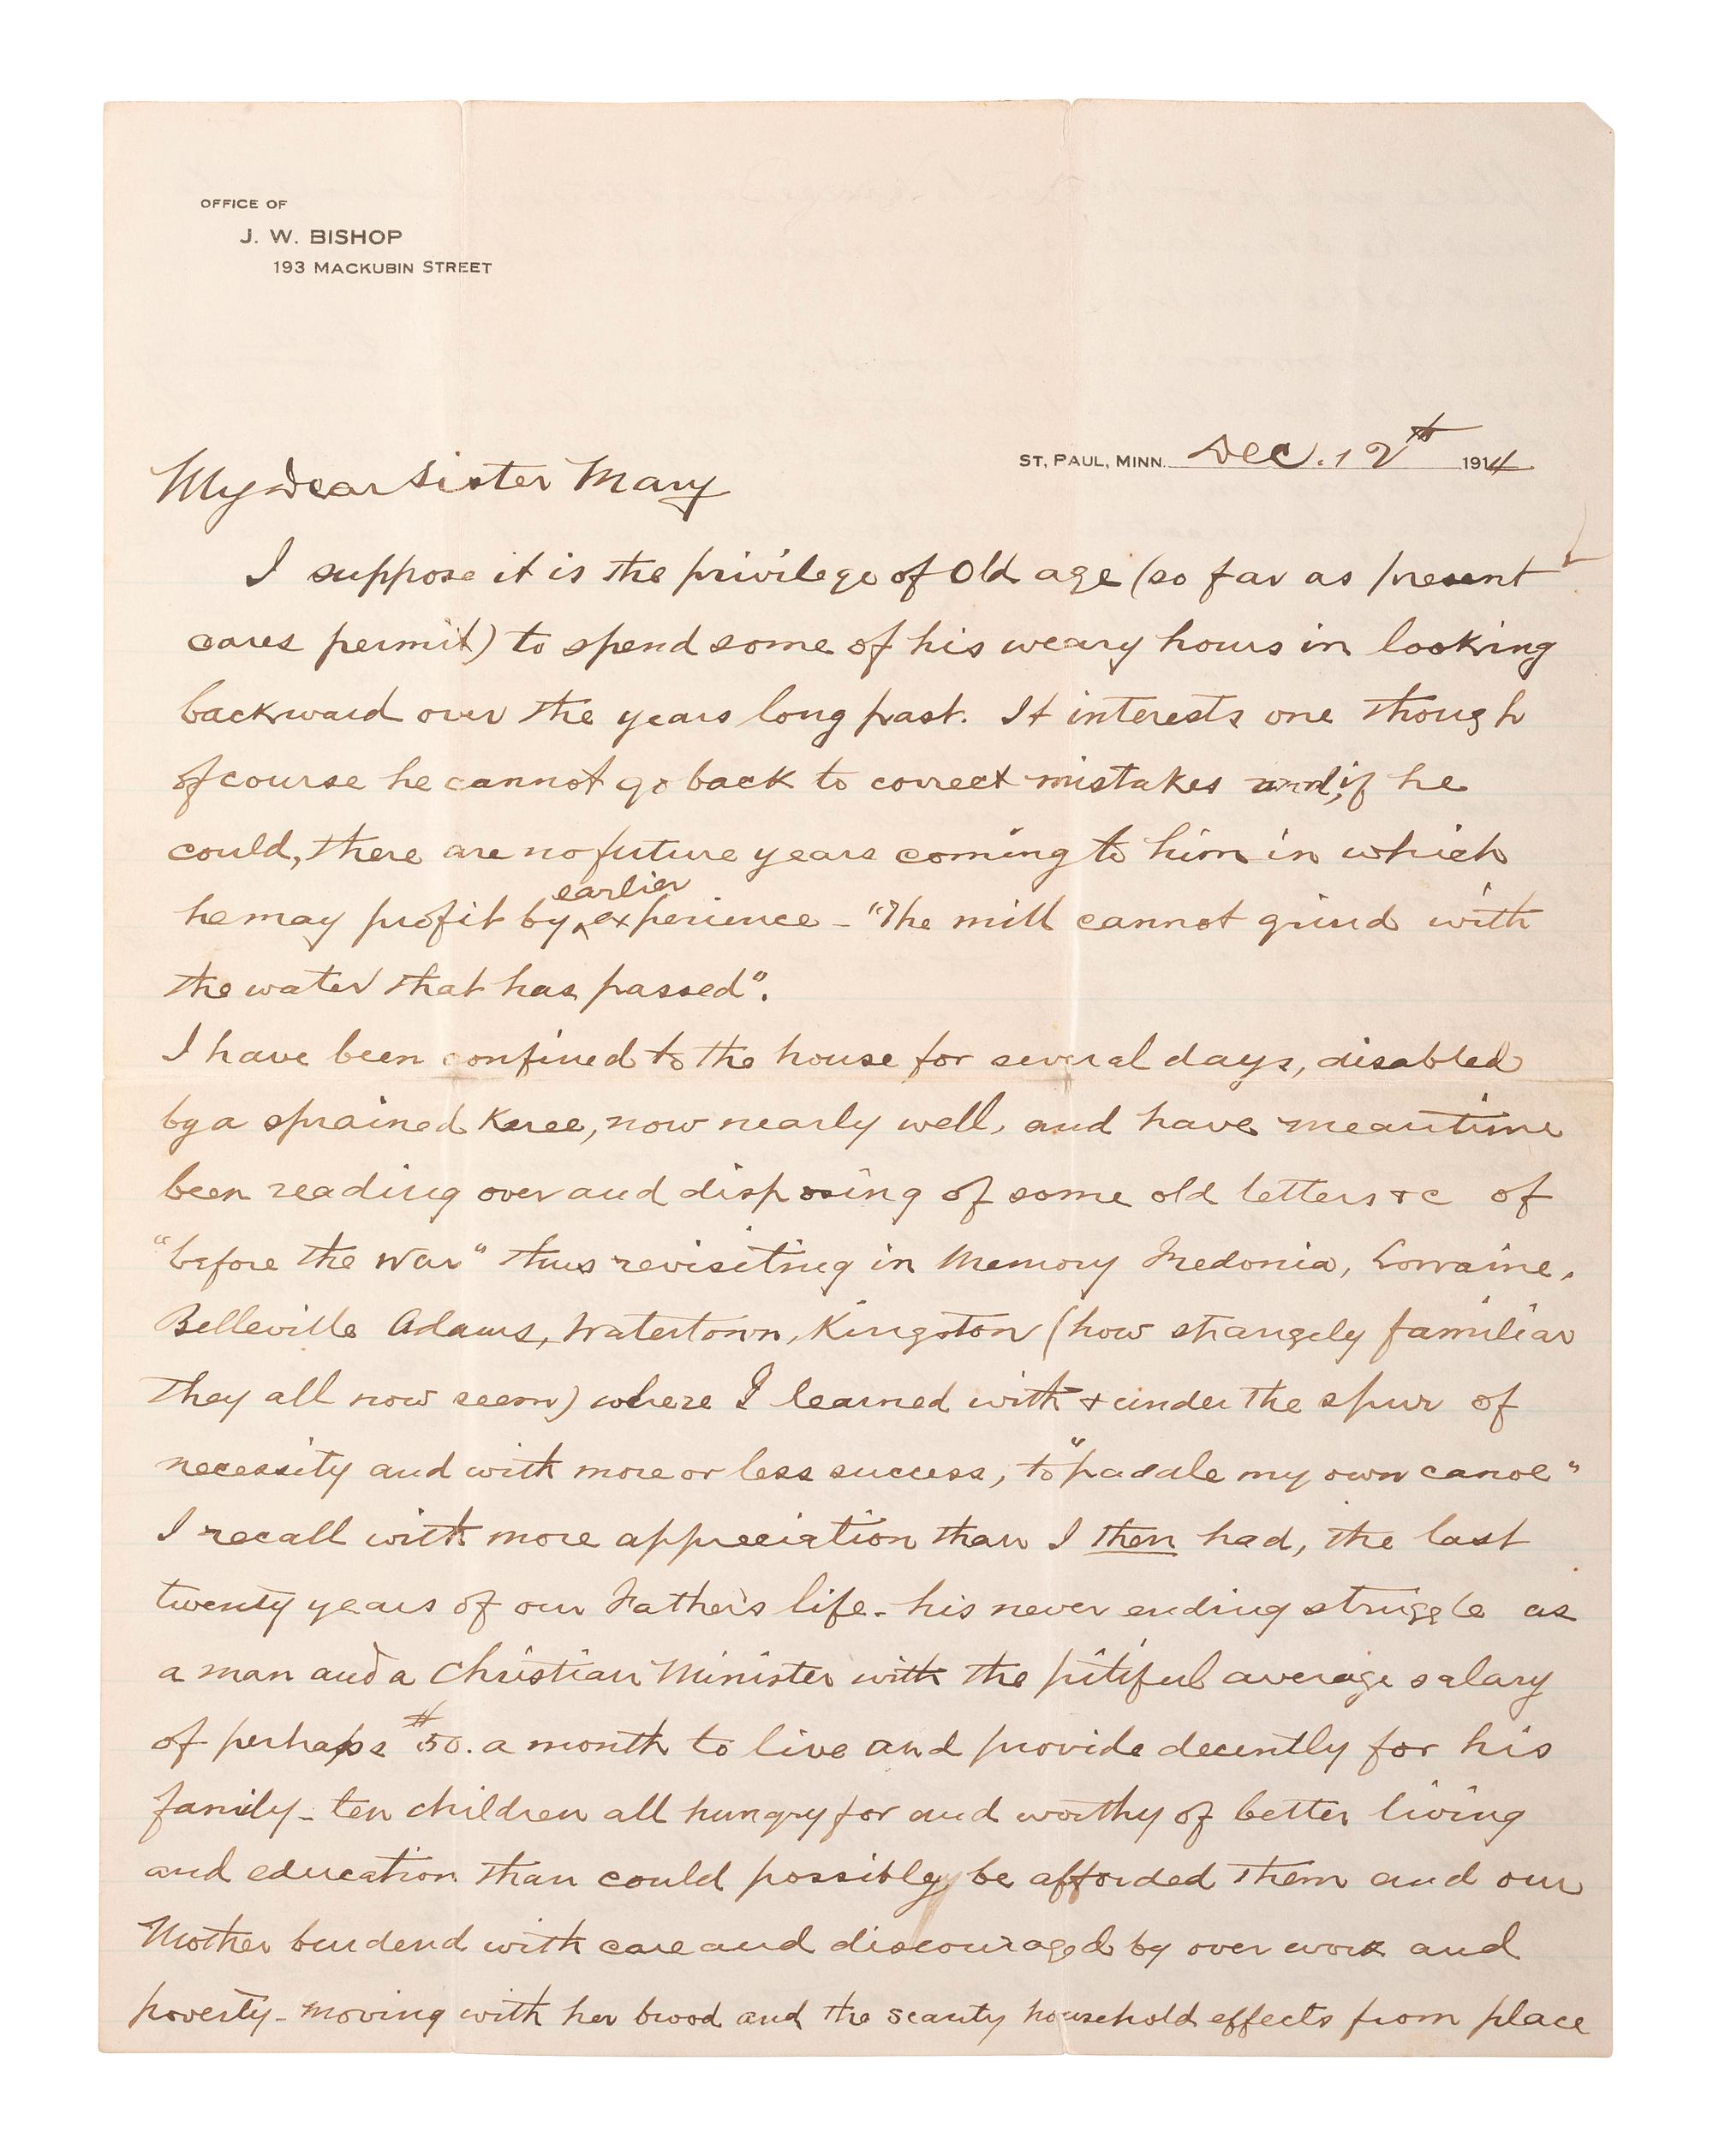 OFFICE OF
J. W. BISHOP
193 MACKUBIN STREET
ST. PAUL, MINN. Dec. 12th 1914
My Dear Sister Mary
I suppose it is the privilege of Old age (so far as present
cares permit) to spend some of his weary hours in looking
backward over the years long past. It interests one though
of course he cannot go back to correct mistakes and, if he
could, there are no future years coming to him in which
earlier
he may profit by ‸ experience - "The mill cannot grind with
the water that has passed".
I have been confined to the house for several days, disabled
by a sprained Knee, now nearly well, and have meantime
been reading over and disposing of some old letters &c of
"before the War" thus revisiting in Memory Fredonia, Lorraine,
Belleville Adams, Watertown, Kingston (how strangely familiar
they all now seem) where I learned with & under the spur of
necessity and with more or less success, to "paddle my own canoe"
I recall with more appreciation than I then had, the last
twenty years of our Father's life - his never ending struggle as
a man and a Christian Minister with the pitiful average salary
of perhaps $50. a month to live and provide decently for his
family - ten children all hungry for and worthy of better living
and education than could possibly be afforded them and our
Mother burdend with care and discouraged by over work and
poverty - moving with her brood and the scanty household effects from place